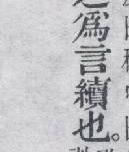 爲言續也。